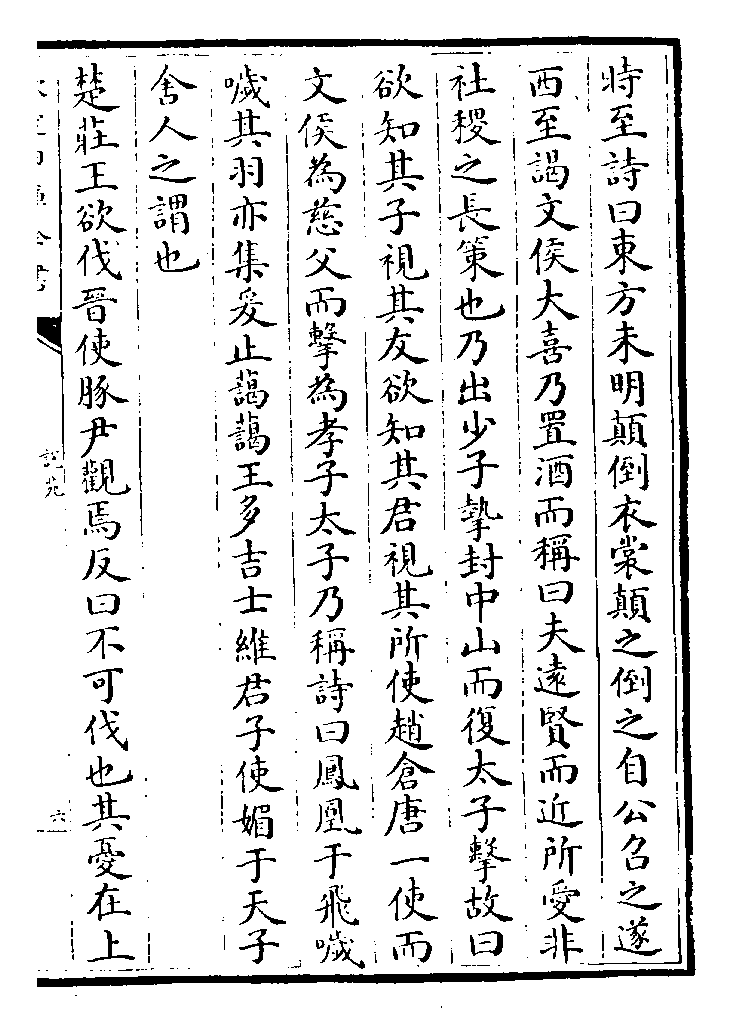 時至詩曰東方未明顛倒衣裳顛之倒之自公召之遂
西至謁文侯大喜乃置酒而稱曰夫遠賢而近所愛非
社稷之長策也乃出少子摯封中山而復太子擊故曰
欲知其子視其友欲知其君視其所使趙倉唐一使而
文侯為慈父而擊為孝子太子乃稱詩曰鳳凰于飛噦
噦其羽亦集爰止藹藹王多吉士維君子使媚于天子
舍人之謂也
楚莊王欲伐晉使豚尹觀焉反曰不可伐也其憂在上
說苑
六